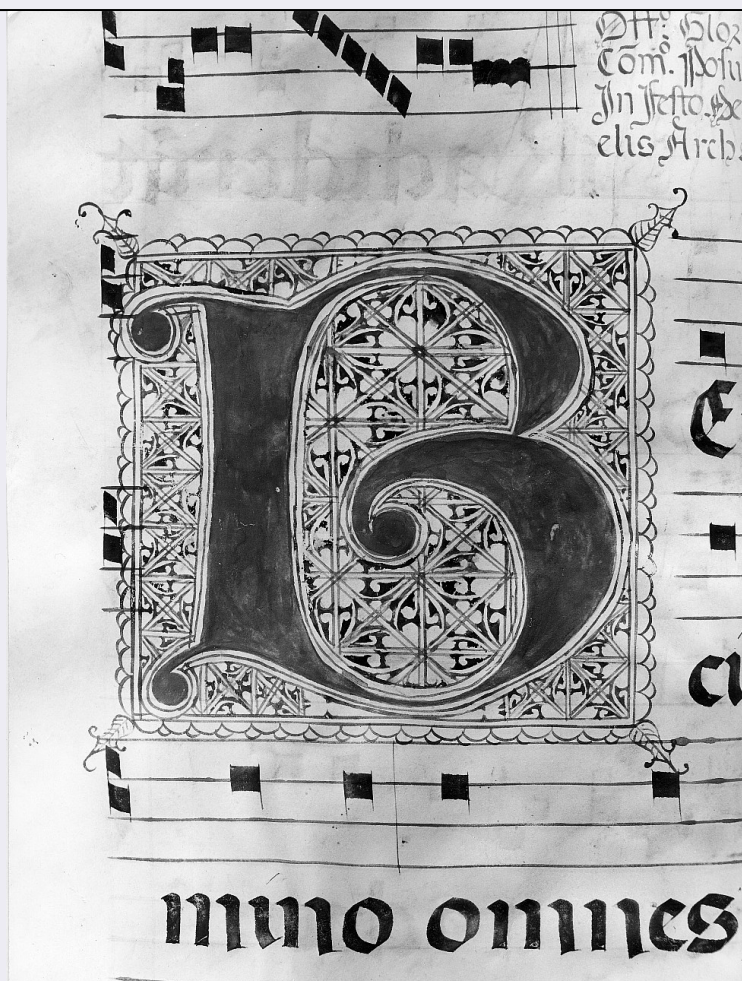 Off: Glor
Com. Posu
In Festo. De
elis Arch.
B
E
ci
mino omnes